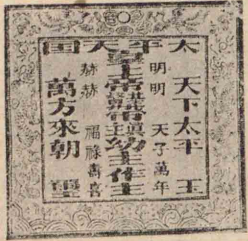 太平天囯
天下太平
明明
天子萬年
皇上帝基督帶瑱幼主作主
赫赫
福祿壽喜
萬方來朝
玉璽